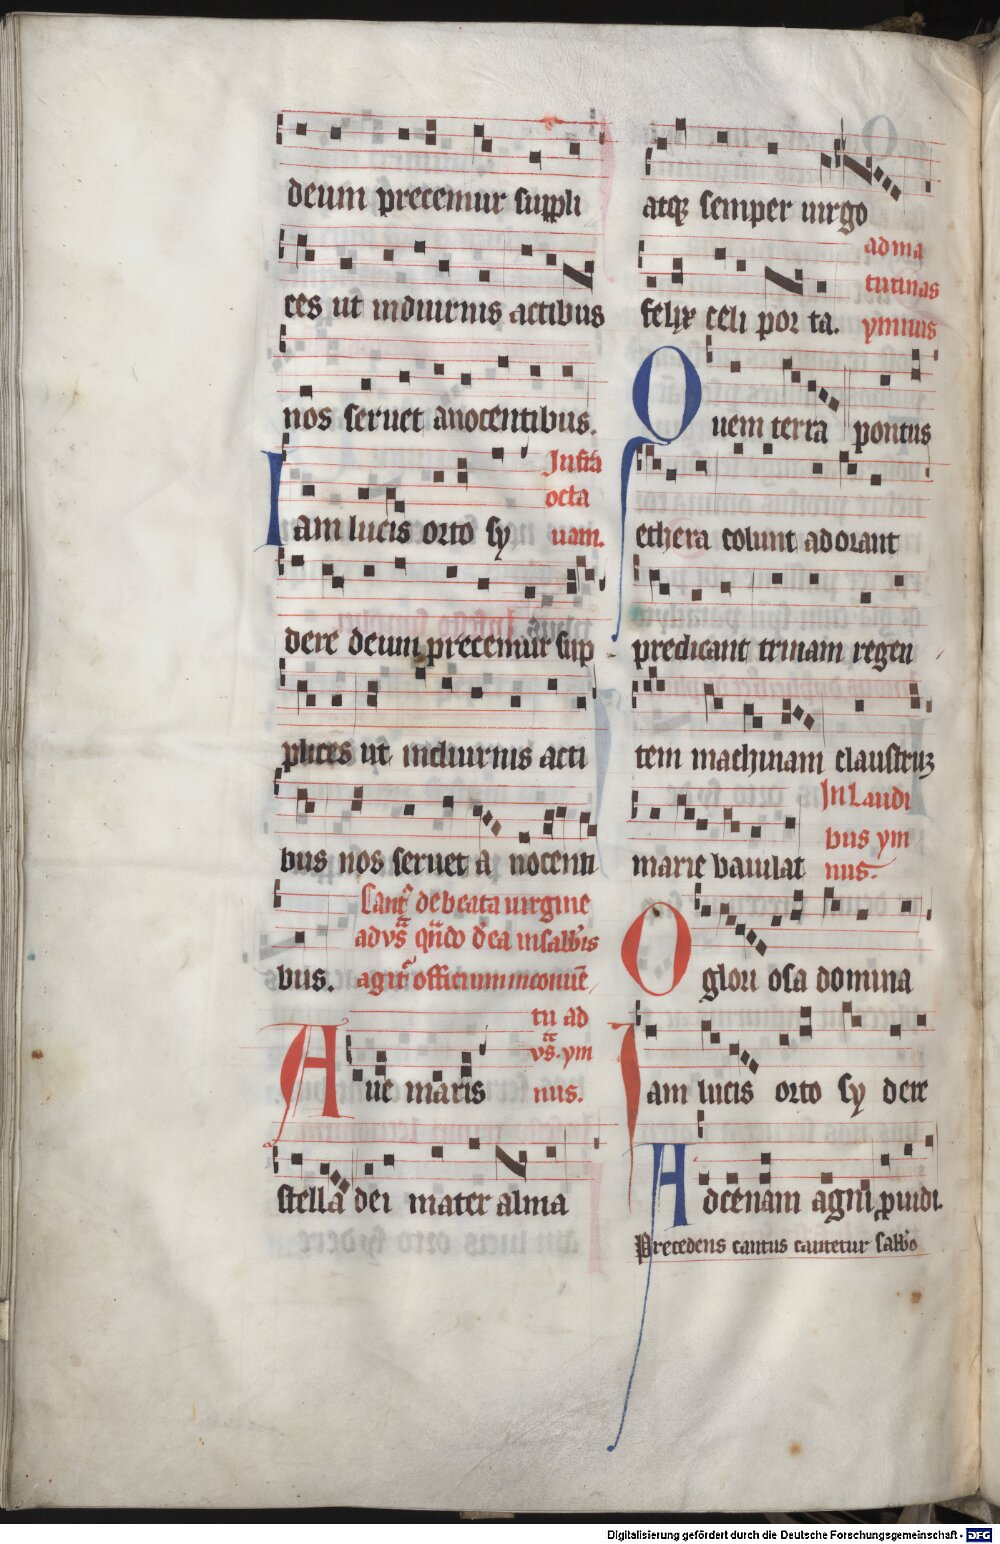 deum precemur suppli
ces ut indiurnis actibus
nos seruet anocentibus.
Infra
octa
uam.
Iam lucis orto sy
dere deum precemur sup
plices ut indiurnis acti
bus nos seruet a nocenti
bus.
Cant9 debeata uirgine
adVs qn̄do d'ea insabb'is
agit' officium inconue
tu ad
vs. ym
nus.
Aue maris
stella dei mater alma
atqȝ semper uirgo
felix celi porta.
ad ma
tutinas
ymnus
Quem terra pontus
ethera colunt adorant
predicant trinam regen
tem machinam claustruȝ
marie baiulat
In Laudi
bus ym
nus.
O gloriosa domina
Iam lucis orto sydere
Adcenam agni puidi.
Precedens cantus cantetur sabb'o
Digitalisierung gefördert durch die Deutsche Forschungsgemeinschaft - DFG